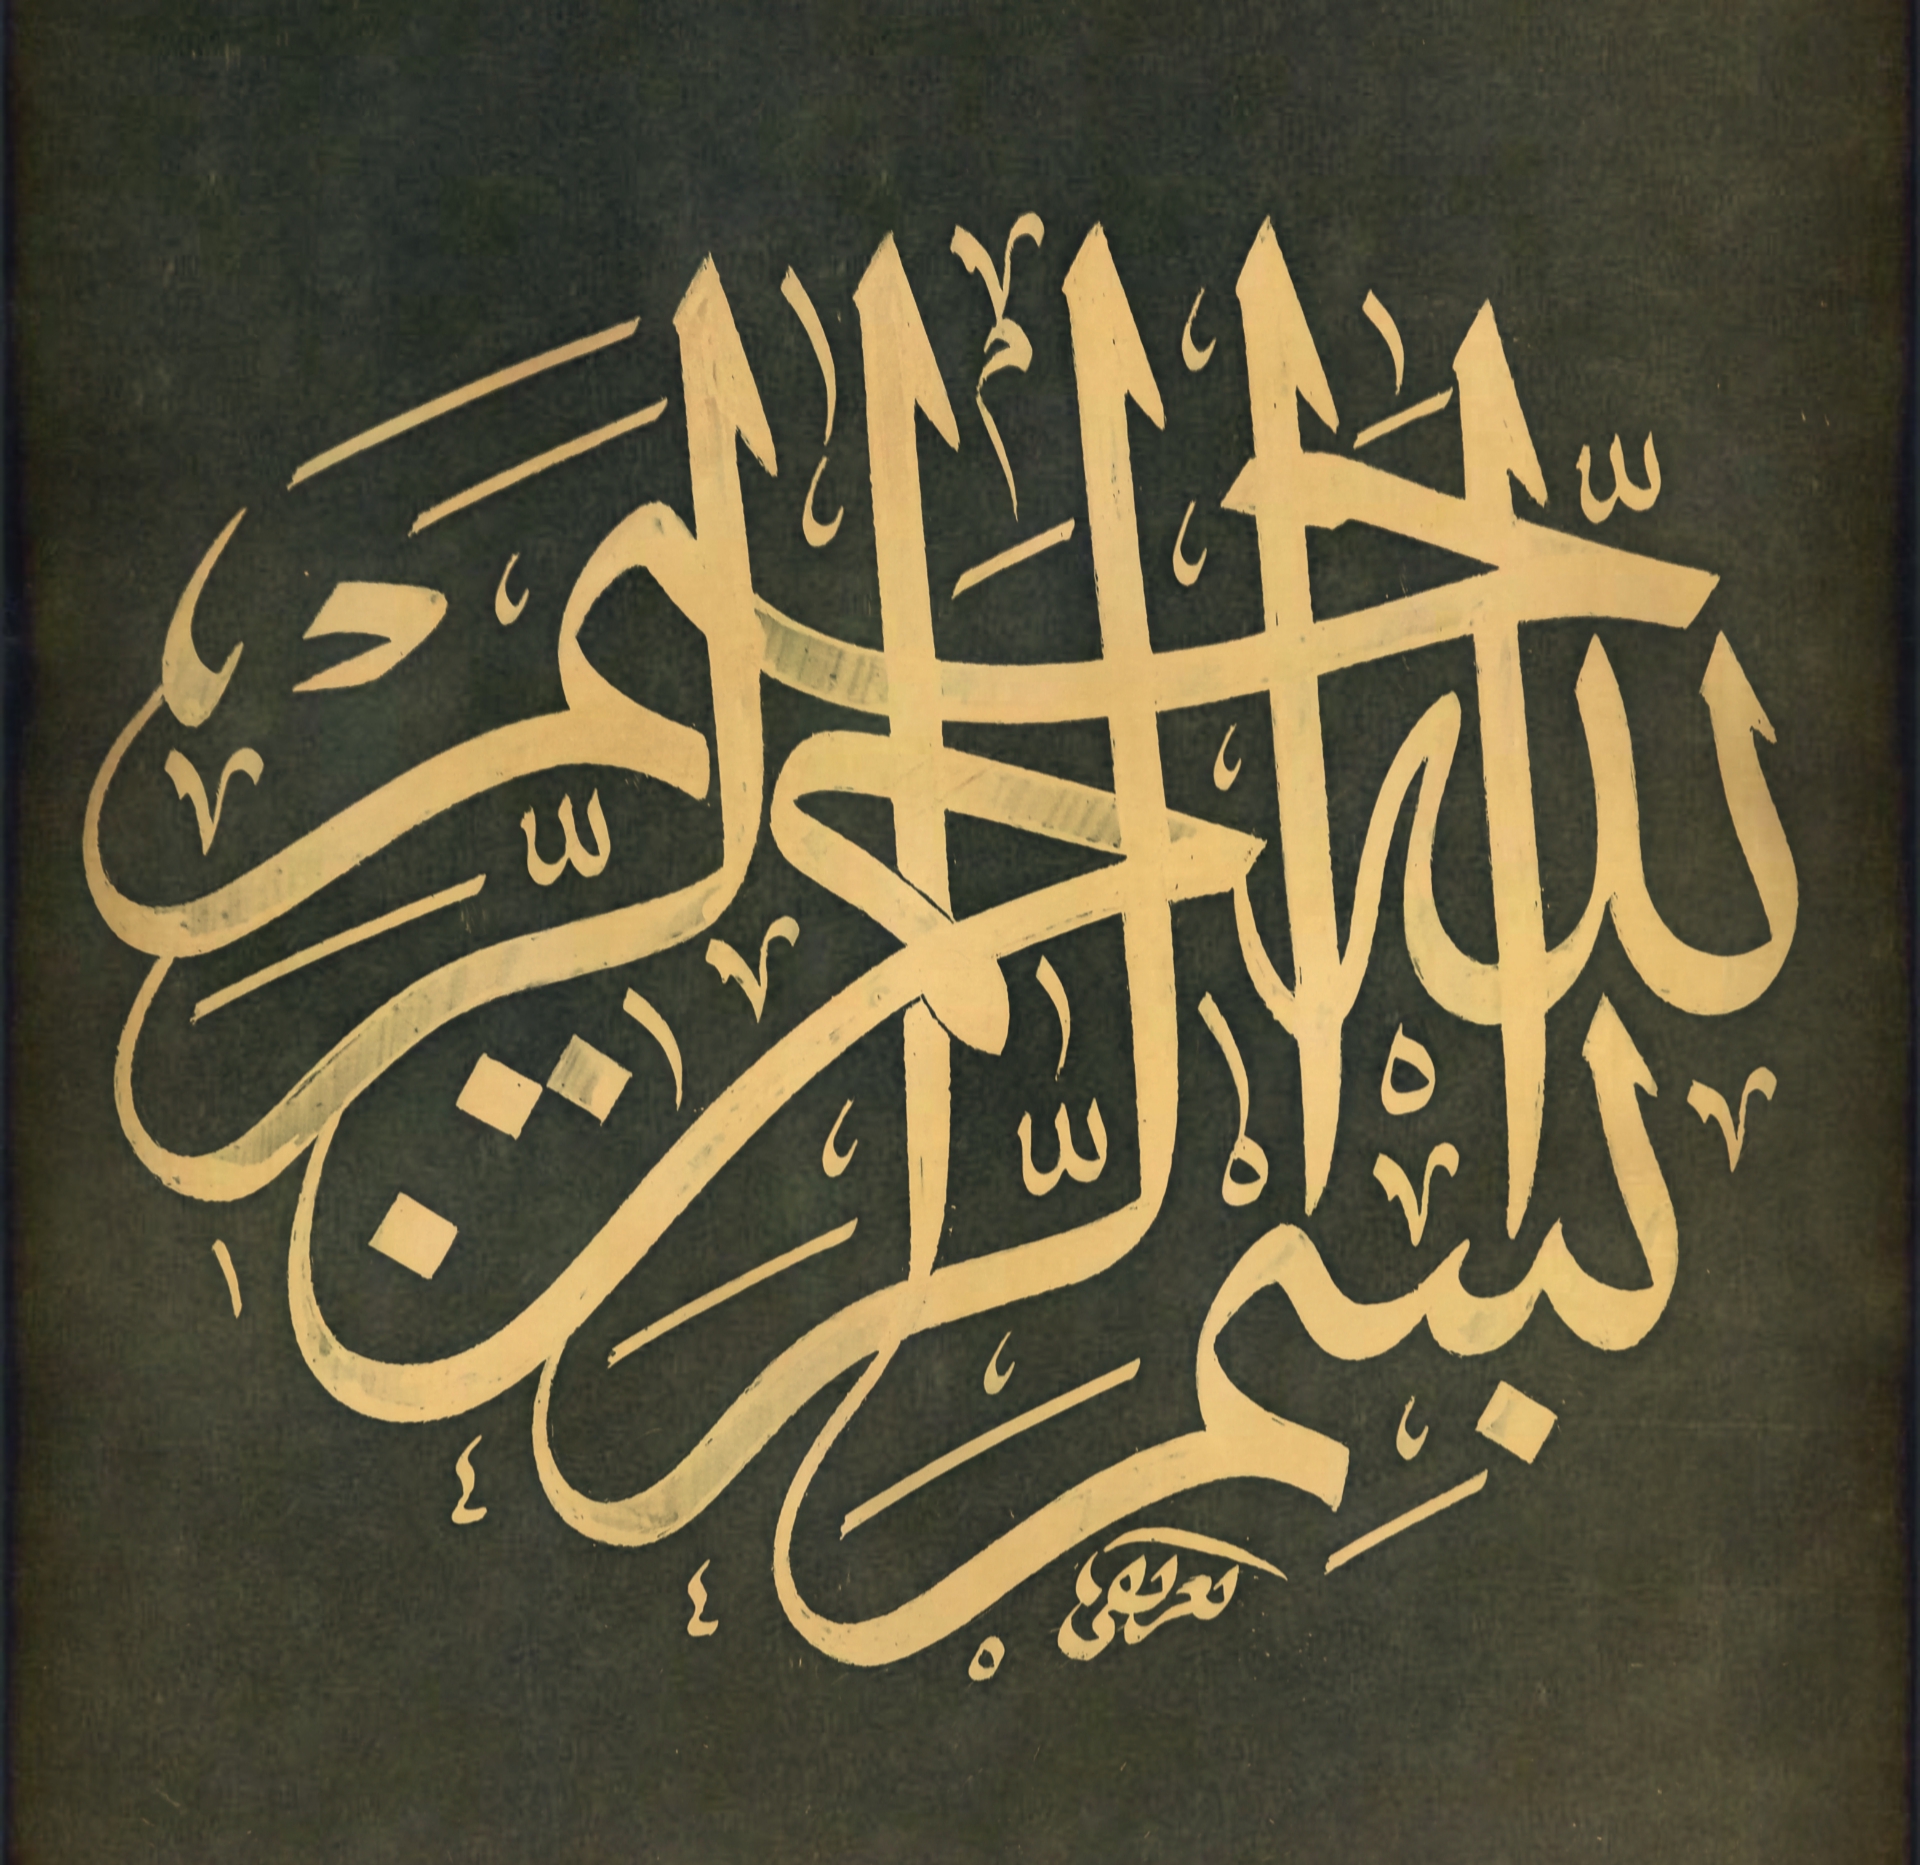 بسم الله الرحمن الرحيم
١٤٤٥